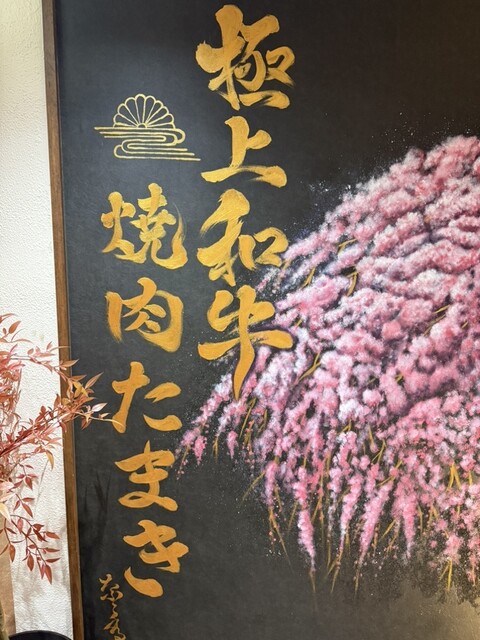 極上和牛
焼肉たまき